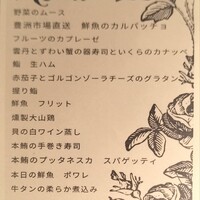 野菜のムース
豊洲市場直送 鮮魚のカルパッチョ
フルーツのカプレーゼ
雲丹とずわい蟹の器寿司といくらのカナッペ
鮨 生ハム
赤茄子とゴルゴンゾーラチーズのグラタン
握り鮨
鮮魚 フリット
燻製大山鶏
貝の白ワイン蒸し
本鮪の手巻き寿司
本鮪のプッタネスカ スパゲッティ
本日の鮮魚 ポワレ
牛タンの柔らか煮込み